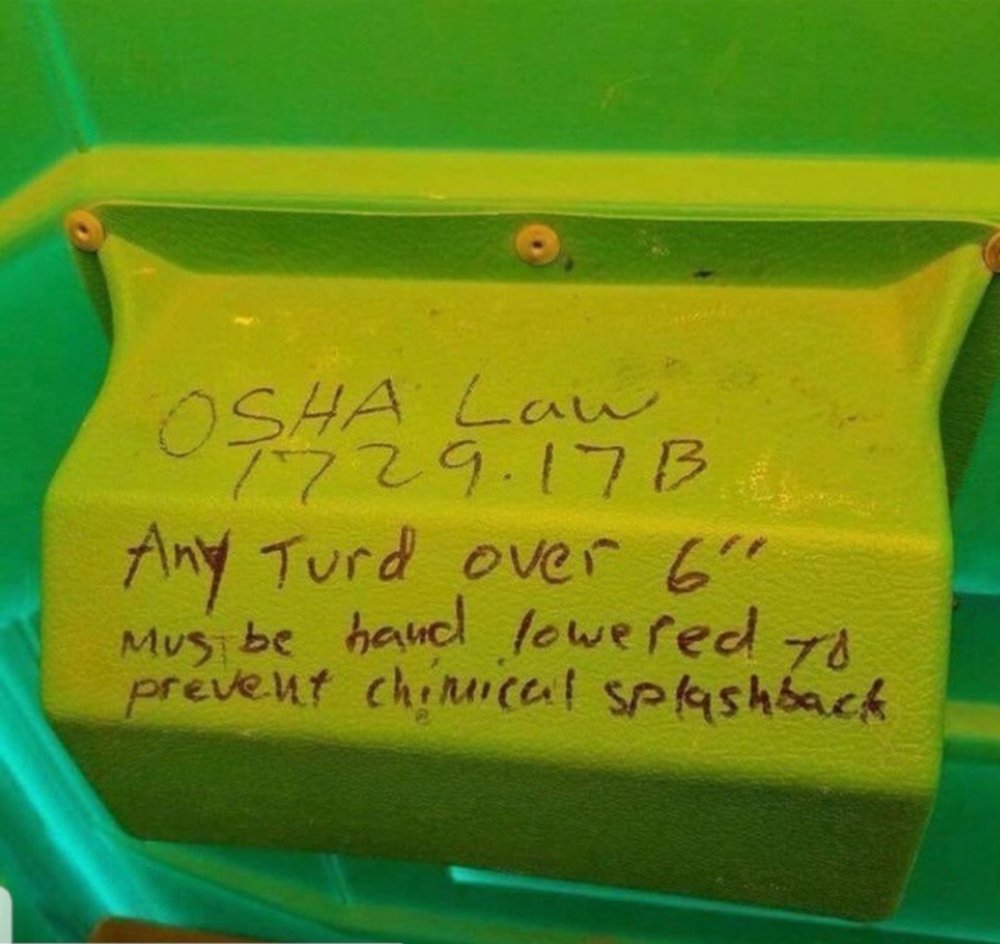 OSHA Law
1729.17B
Any Turd over 6"
Must be hand lowered To
prevent chimical splashback